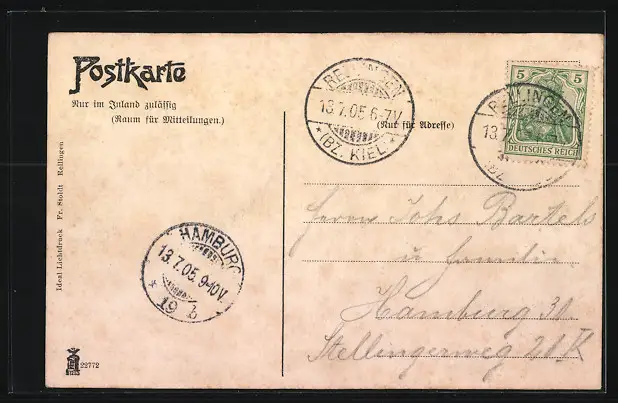 Postkarte
Nur im Inland zulässig
(Raum für Mitteilungen.)
(Nur für Adresse)
RELLINGEN
13.7.05 6-7V
*(BZ. KIEL)*
RELLINGEN
13.
BZ.
5 5
DEUTSCHES REICH
Herrn Johs Bartels
u Familie
Hamburg 31.
Stellingerweg
HAMBURG
13.7.05. 9-10V.
* 19
Ideal Lichtdruck Fr. Stoldt Rellingen
22772